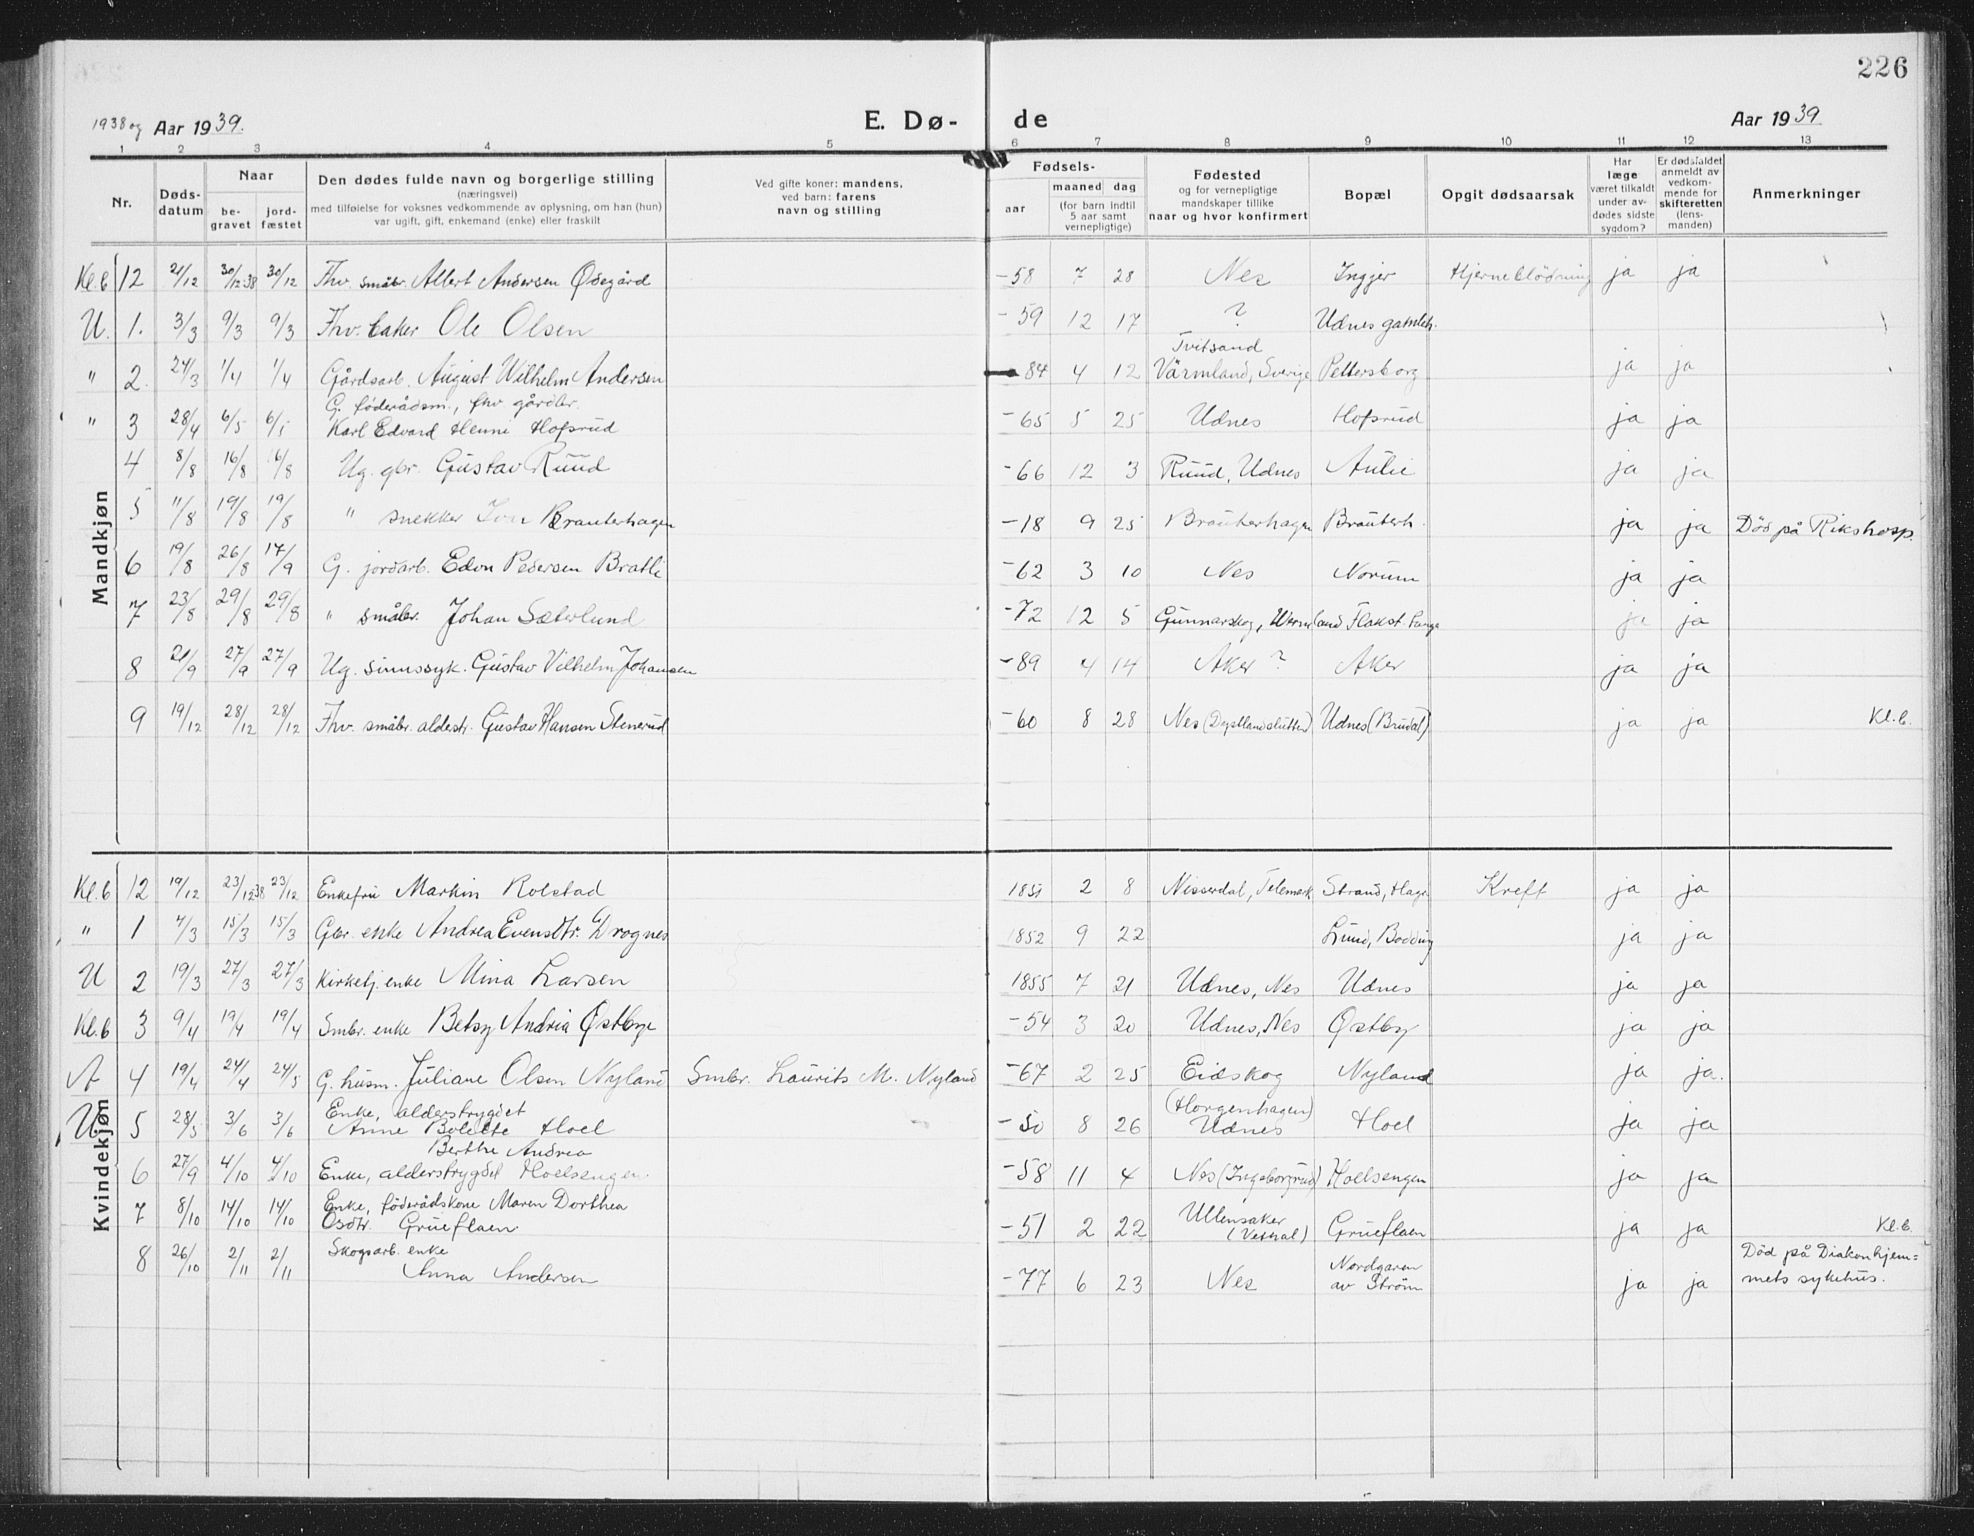 226
1938 og Aar 1939. E. Dø- de Aar 1939
1 2 3 4 5 6 7 8 9 10 11 12 13
Nr. Døds-datum Naar be-gravet jord-fæstet Den dødes fulde navn og borgerlige stilling (næringsvei) med tilføielse for voksnes vedkommende av oplysning, om han (hun) var ugift, gift, enkemand (enke) eller fraskilt Ved gifte koner: mandens, ved barn: farens navn og stilling Fødsels- aar maaned dag (for barn indtil 5 aar samt vernepligtige) Fødested og for vernepligtige mandskaper tillike naar og hvor konfirmert Bopæl Opgit dødsaarsak Har læge været tilkaldt under av-dødes sidste sygdom? Er dødsfaldet anmeldt av vedkom-mende for skifteretten (lens-manden) Anmerkninger
Mandkjøn
Kl.b 12 21/12 30/12 38 30/12 Fhv. småbr. Albert Andersen Ødegård -58 7 28 Nes Ingjer Hjerneblødning ja ja
U. 1. 3/3 9/3 9/3 Fhv. baker Ole Olsen -59 12 17 ? Udnes gamleh.
" 2. 24/3 1/4 1/4 Gårdsarb. August Wilhelm Andersen -84 4 12 Tvitsand Värmland, Sverige Pettersborg ja ja
" 3 28/4 6/5 6/5 G. föderådsm., fhv gårdbr. Karl Edvard Henni Hofsrud -65 5 25 Udnes Hofsrud ja ja
4 8/8 16/8 16/8 Ug. gbr. Gustav Ruud -66 12 3 Ruud, Udnes Aulie ja ja
5 11/8 19/8 19/8 " snekker Brauterhagen -18 9 25 Brauterhagen Brauterh. ja ja Död på Rikshosp.
6 19/8 26/8 17/9 G. jordarb. Edvn Pedersen Bratli -62 3 10 Nes Norum ja ja
7 23/8 29/8 29/8 " småbr. Johan Sæterlund -72 12 5 Gunnarskog, Wermland Flakst. ja ja
8 21/9 27/9 27/9 Ug. sinnssyk. Gustav Vilhelm Johansen -89 4 14 Aker ? Aker ja ja
9 19/12 28/12 28/12 Fhv. småbr. alderstr. Gustav Hansen Stenerud -60 8 28 Nes Udnes (Brudal) ja ja Kl.b.
Kvindekjøn
Kl.b 12 19/12 23/12 38 23/12 Enkefru Martin Rolstad 1851 2 8 Nisserdal, Telemark Strand, Haga Kreft ja ja
" 1 7/3 15/3 15/3 Gbr. enke Andrea Evensdtr. Drognes 1852 9 22 Lund, Bodding ja ja
U 2 19/3 27/3 27/3 Kirketj. enke Mina Larsen 1855 7 21 Udnes, Nes Udnes ja ja
Kl.b 3 9/4 19/4 19/4 Smbr. enke Betsy Andria Østbye -54 3 20 Udnes, Nes Østby ja ja
A 4 19/4 24/4 24/5 G. husm. Juliane Olsen Nyland Smbr. Laurits M. Nyland -67 2 25 Eidskog Nyland ja ja.
U 5 28/5 3/6 3/6 Enke, alderstrygdet Anne Bolette Hoel -50 8 26 (Horgenhagen) Udnes Hoel ja ja
6 27/9 4/10 4/10 Berthe Andrea Enke, alderstrygdet Hoelsengen. -58 11 4 Nes (Ingeborgrud) Hoelsengen ja ja
7 8/10 14/10 14/10 Enke, föderådskone Maren Dorthea Osdtr. Grueflaen -51 2 22 Ullensaker (Vesthal) Grueflaen ja ja Kl.b.
8 26/10 2/11 2/11 Skogsarb. enke Anna Andersen -77 6 23 Nes Nordgaren av Ström ja ja Död på Diakonhjem=mets sykehus.